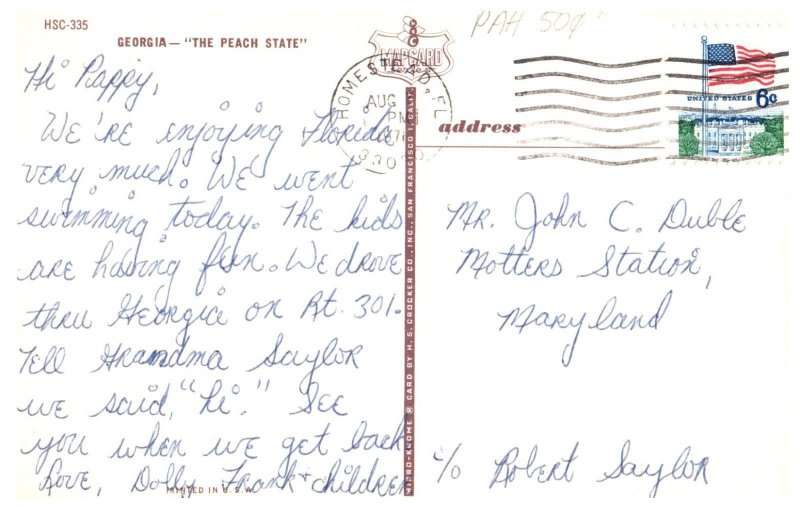 HSC-335
GEORGIA — "THE PEACH STATE"
PAH 50¢
Hi Pappy,
We're enjoying Florida
very much. We went
swimming today. The kids
are having fun. We drove
thru Georgia on Rt. 301.
Tell Grandma Saylor
we said, "hi." See
you when we get back
Love, Dolly Frank + children
PRINTED IN U.S.A.
MIRRO-KROME ® CARD BY H. S. CROCKER CO., INC., SAN FRANCISCO 1, CALIF.
HOMESTEAD, FL
AUG
PM
UNITED STATES 6c
address
Mr. John C. Duble
Motters Station,
Maryland
c/o Robert Saylor